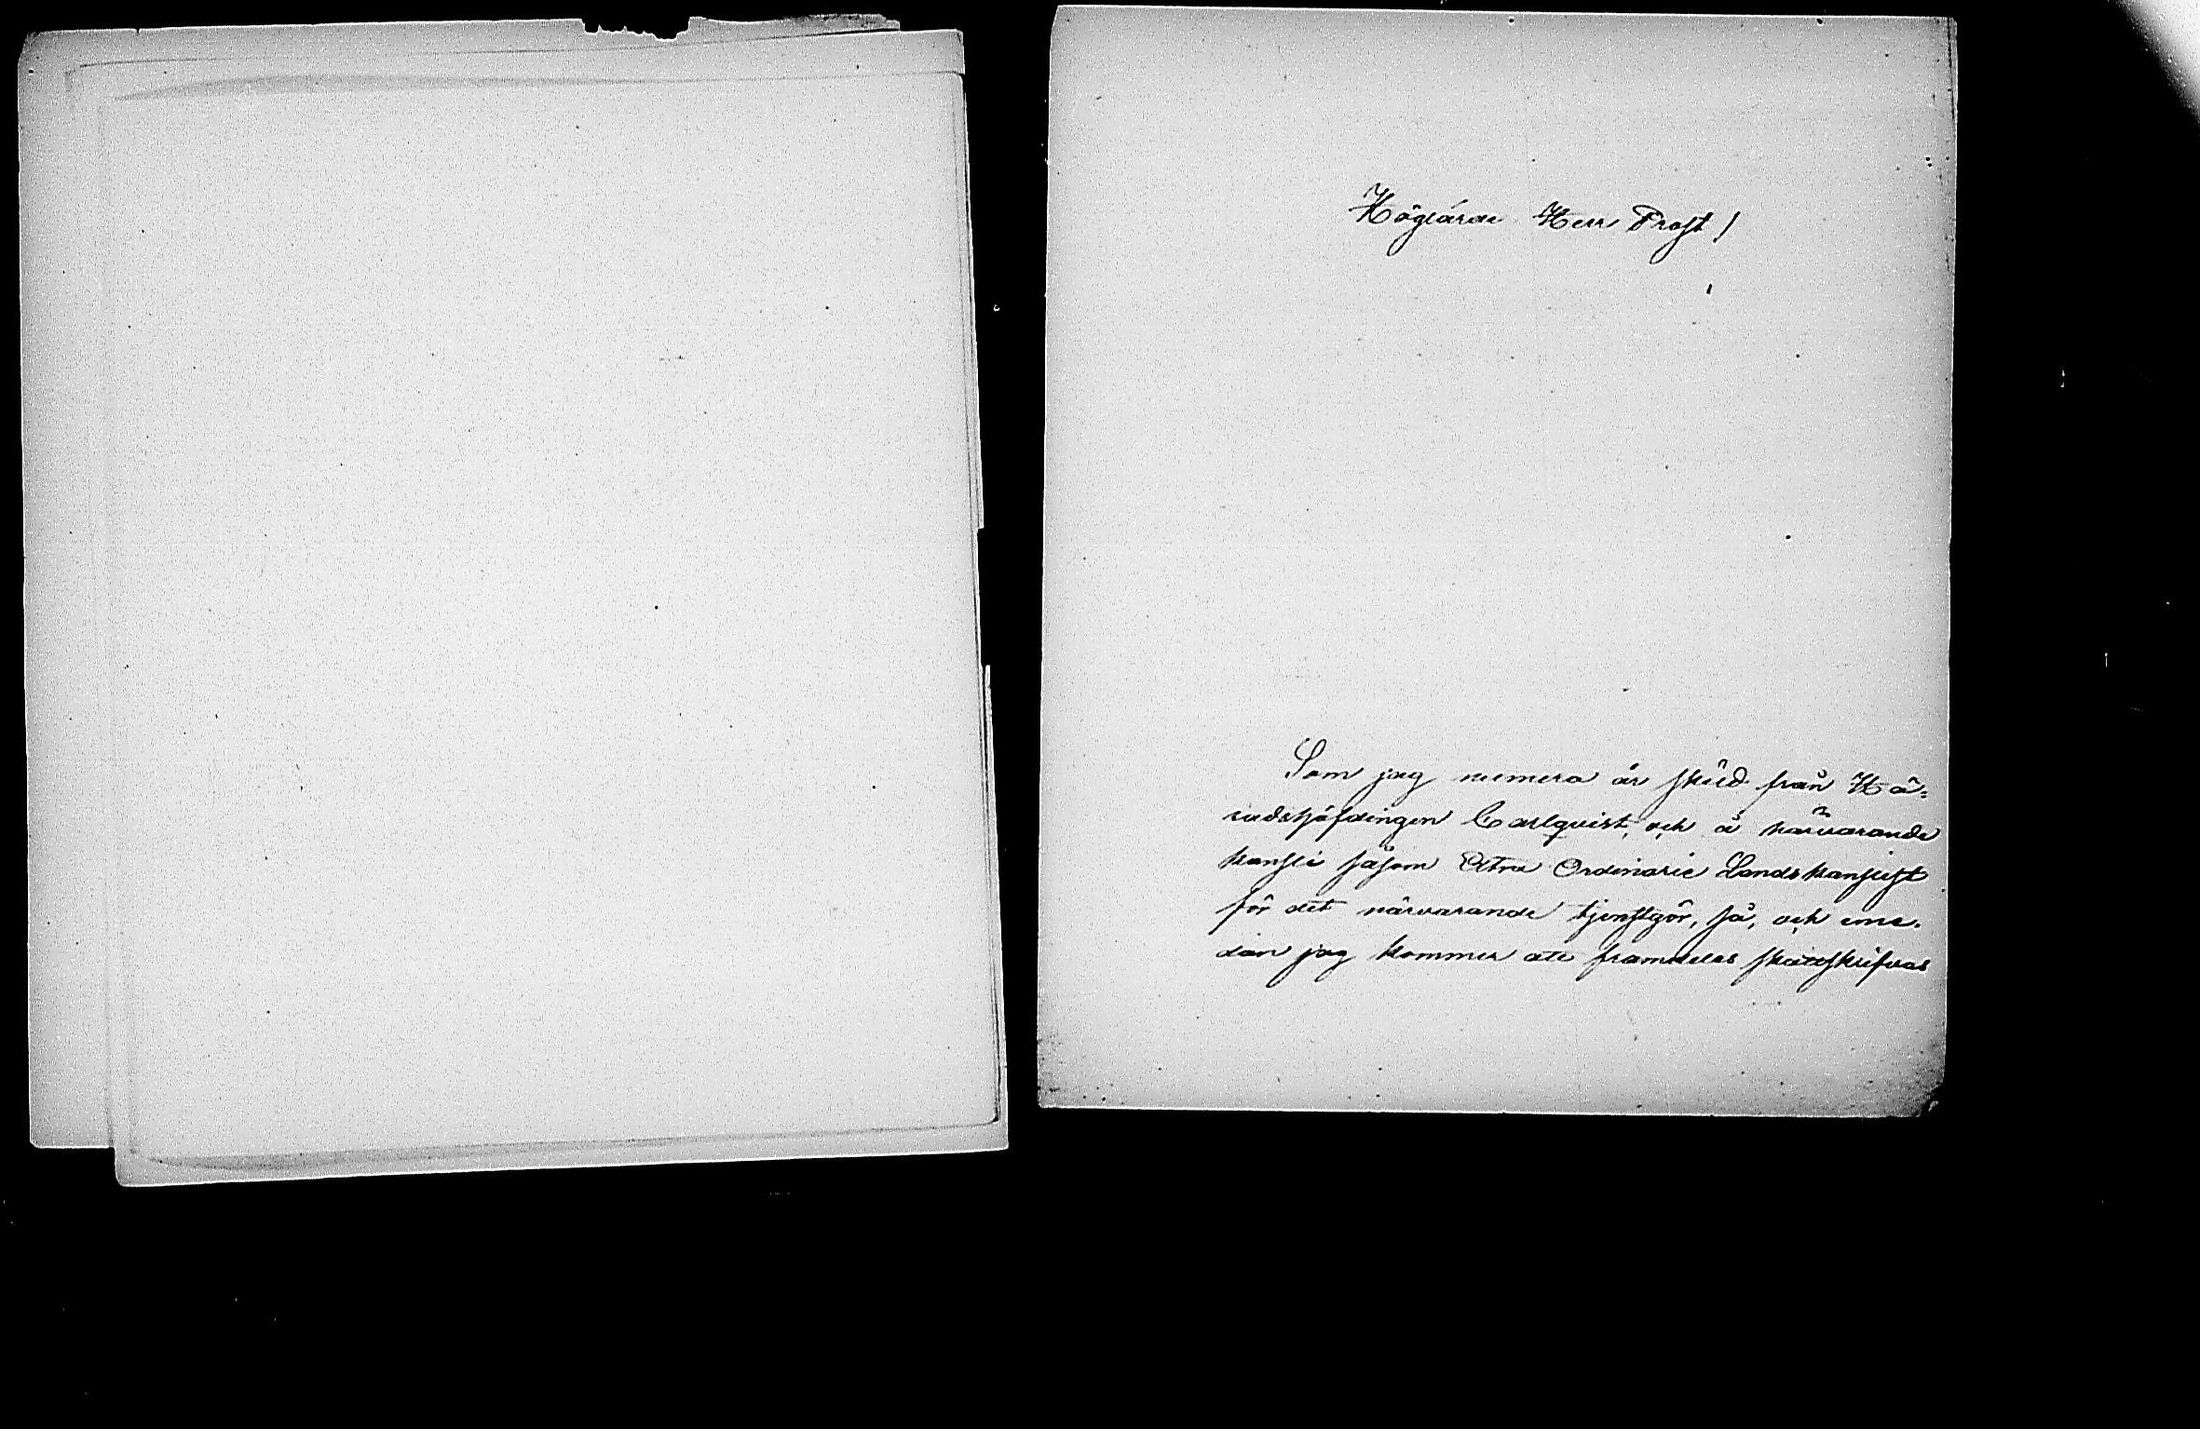 Höglärde Herr Prost!
Som jag numera är skild från Hä=
radshöfdingen Carlqvist, och å härvarande
kansli såsom Extra Ordinarie Landskanslist
för det närvarande tjenstgör, så, och eme-
dan jag kommer att framdeles skattskrifvas